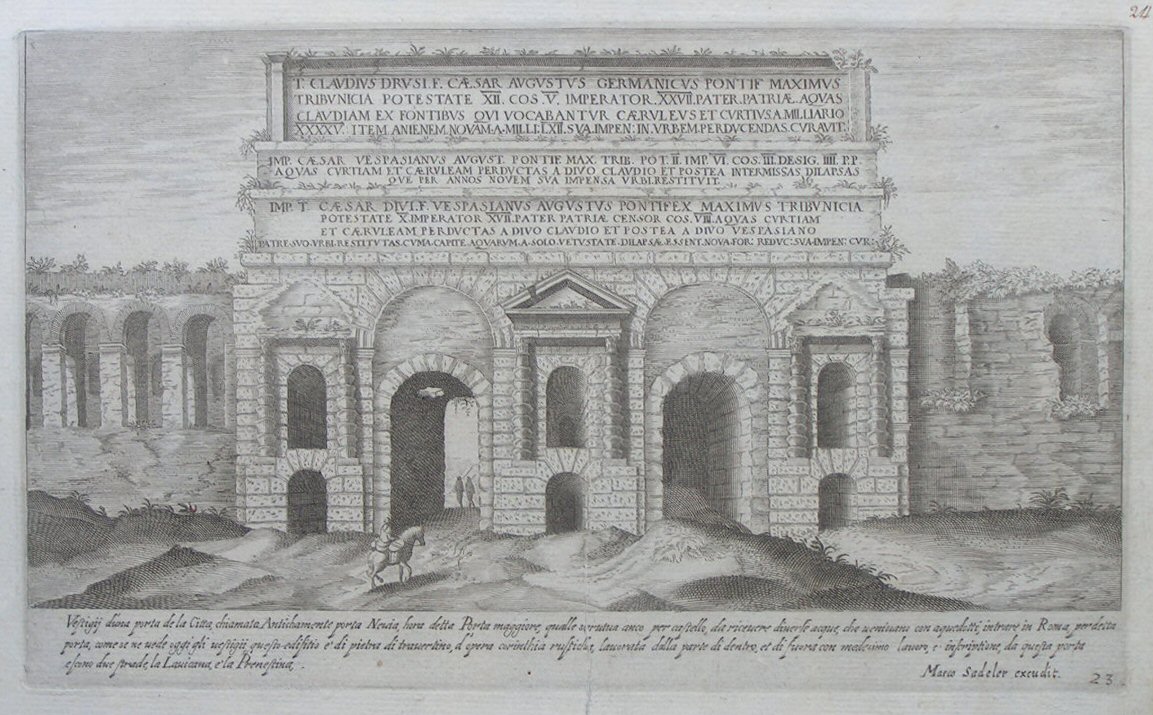 24
T. CLAVDIVS DRVSI.F. CÆSAR AVGVSTVS GERMANICVS PONTIF MAXIMVS
TRIBVNICIA POTESTATE XII. COS .V. IMPERATOR.XXVII.PATER.PATRIÆ.AQVAS
CLAVDIAM EX FONTIBVS QVI VOCABANTVR CÆRVLEVS ET CVRTIVS.A.MILLIARIO
XXXXV. ITEM ANIENEM.NOVAM.A.MILLI.LXII.SVA.IMPEN: IN.VRBEM.PERDVCENDAS.CVRAVIT.
IMP. CÆSAR VESPASIANVS AVGVST. PONTIF MAX. TRIB. POT. II. IMP. VI. COS. III. DESIG. IIII. P.P.
AQVAS CVRTIAM ET CÆRVLEAM PERDVCTAS A DIVO CLAVDIO ET POSTEA INTERMISSAS DILAPSAS
QVE PER ANNOS NOVEM SVA IMPENSA VRBI.RESTITVIT.
IMP. T. CÆSAR DIVI.F. VESPASIANVS AVGVSTVS PONTIFEX MAXIMVS TRIBVNICIA
POTESTATE X.IMPERATOR XVII.PATER PATRIÆ CENSOR COS. VIII. AQVAS CVRTIAM
ET CÆRVLEAM PERDVCTAS A DIVO CLAVDIO ET POSTEA A DIVO VESPASIANO
PATRE.SVO.VRBI.RESTITVTAS.CVM.A.CAPITE.AQVARVM.A.SOLO.VETVSTATE.DILAPSÆ.ESSENT.NOVA.FOR: REDVC: SVA.IMPEN: CVR:
Vestigij d'una porta de la Citta, chiamata Antichamente porta Nevia, hora detta Porta maggiore, qualle serviua anco per castello, da riceuere diuerse acque, che veniuano con aquedotti, intrare in Roma, per detta
porta, come se ne vede oggi gli uestigij questo edifitio è di pietra di trauertino, d'opera corinthia rustichs, lauorata dalla parte di dentro, et di fuora con medesimo lauoro, e inscriptione, da questa porta
escono due strade, la Lauicana, e la Prenestina.
Marco Sadeler excudit.
23